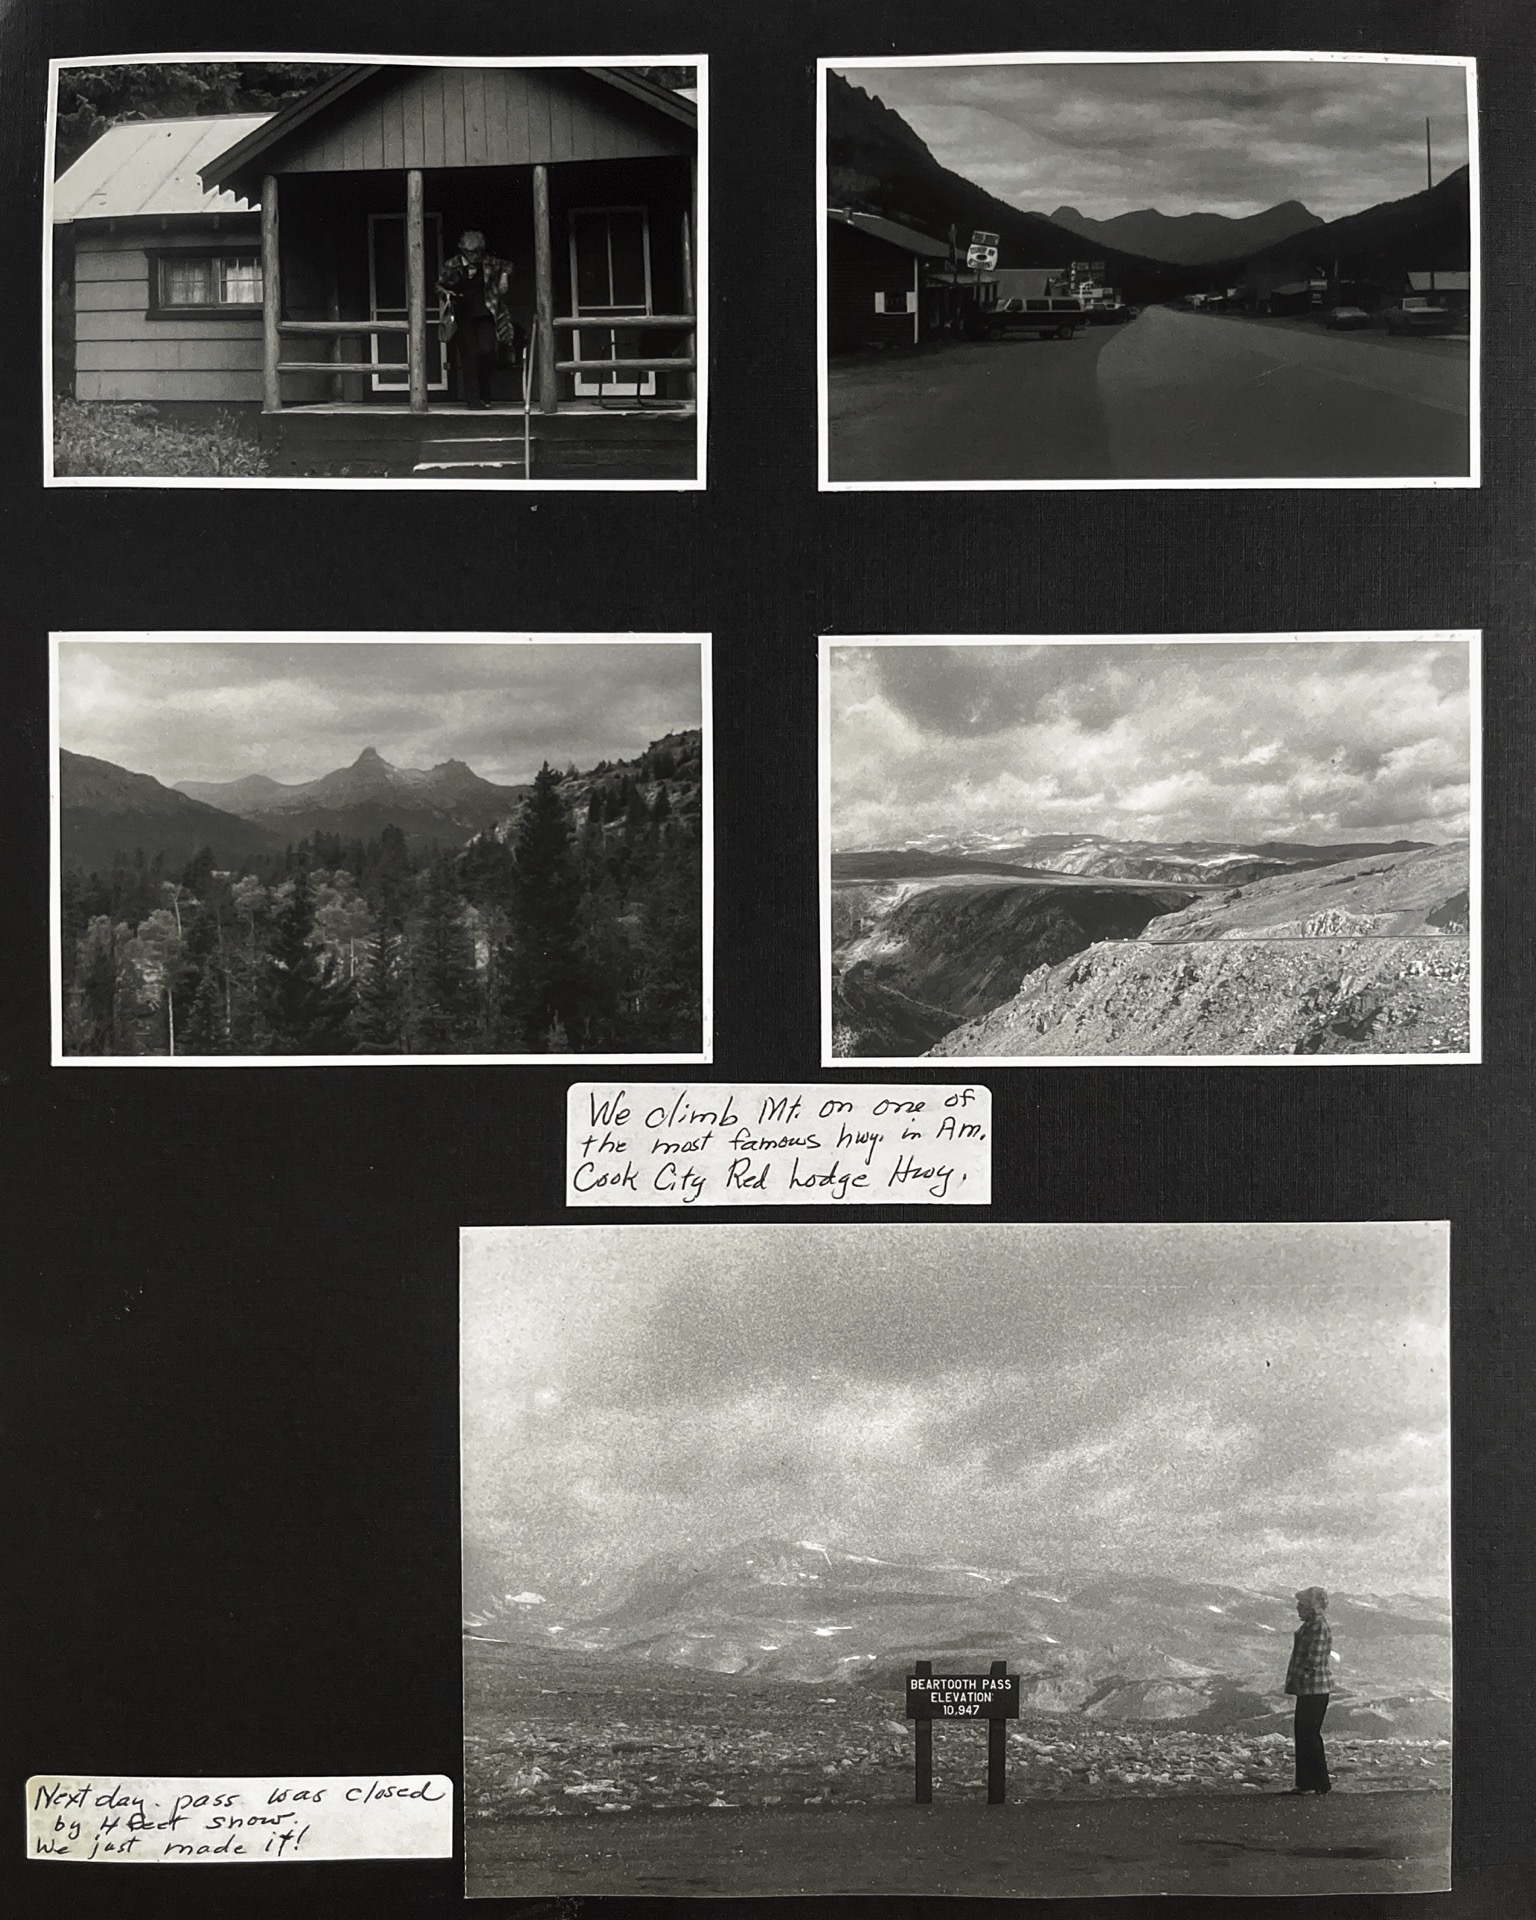 We climb Mt. on one of
the most famous hwy. in Am.
Cook City Red Lodge Hwy.
BEARTOOTH PASS
ELEVATION
10,947
Next day. pass was closed
by 4 feet snow.
We just made it!